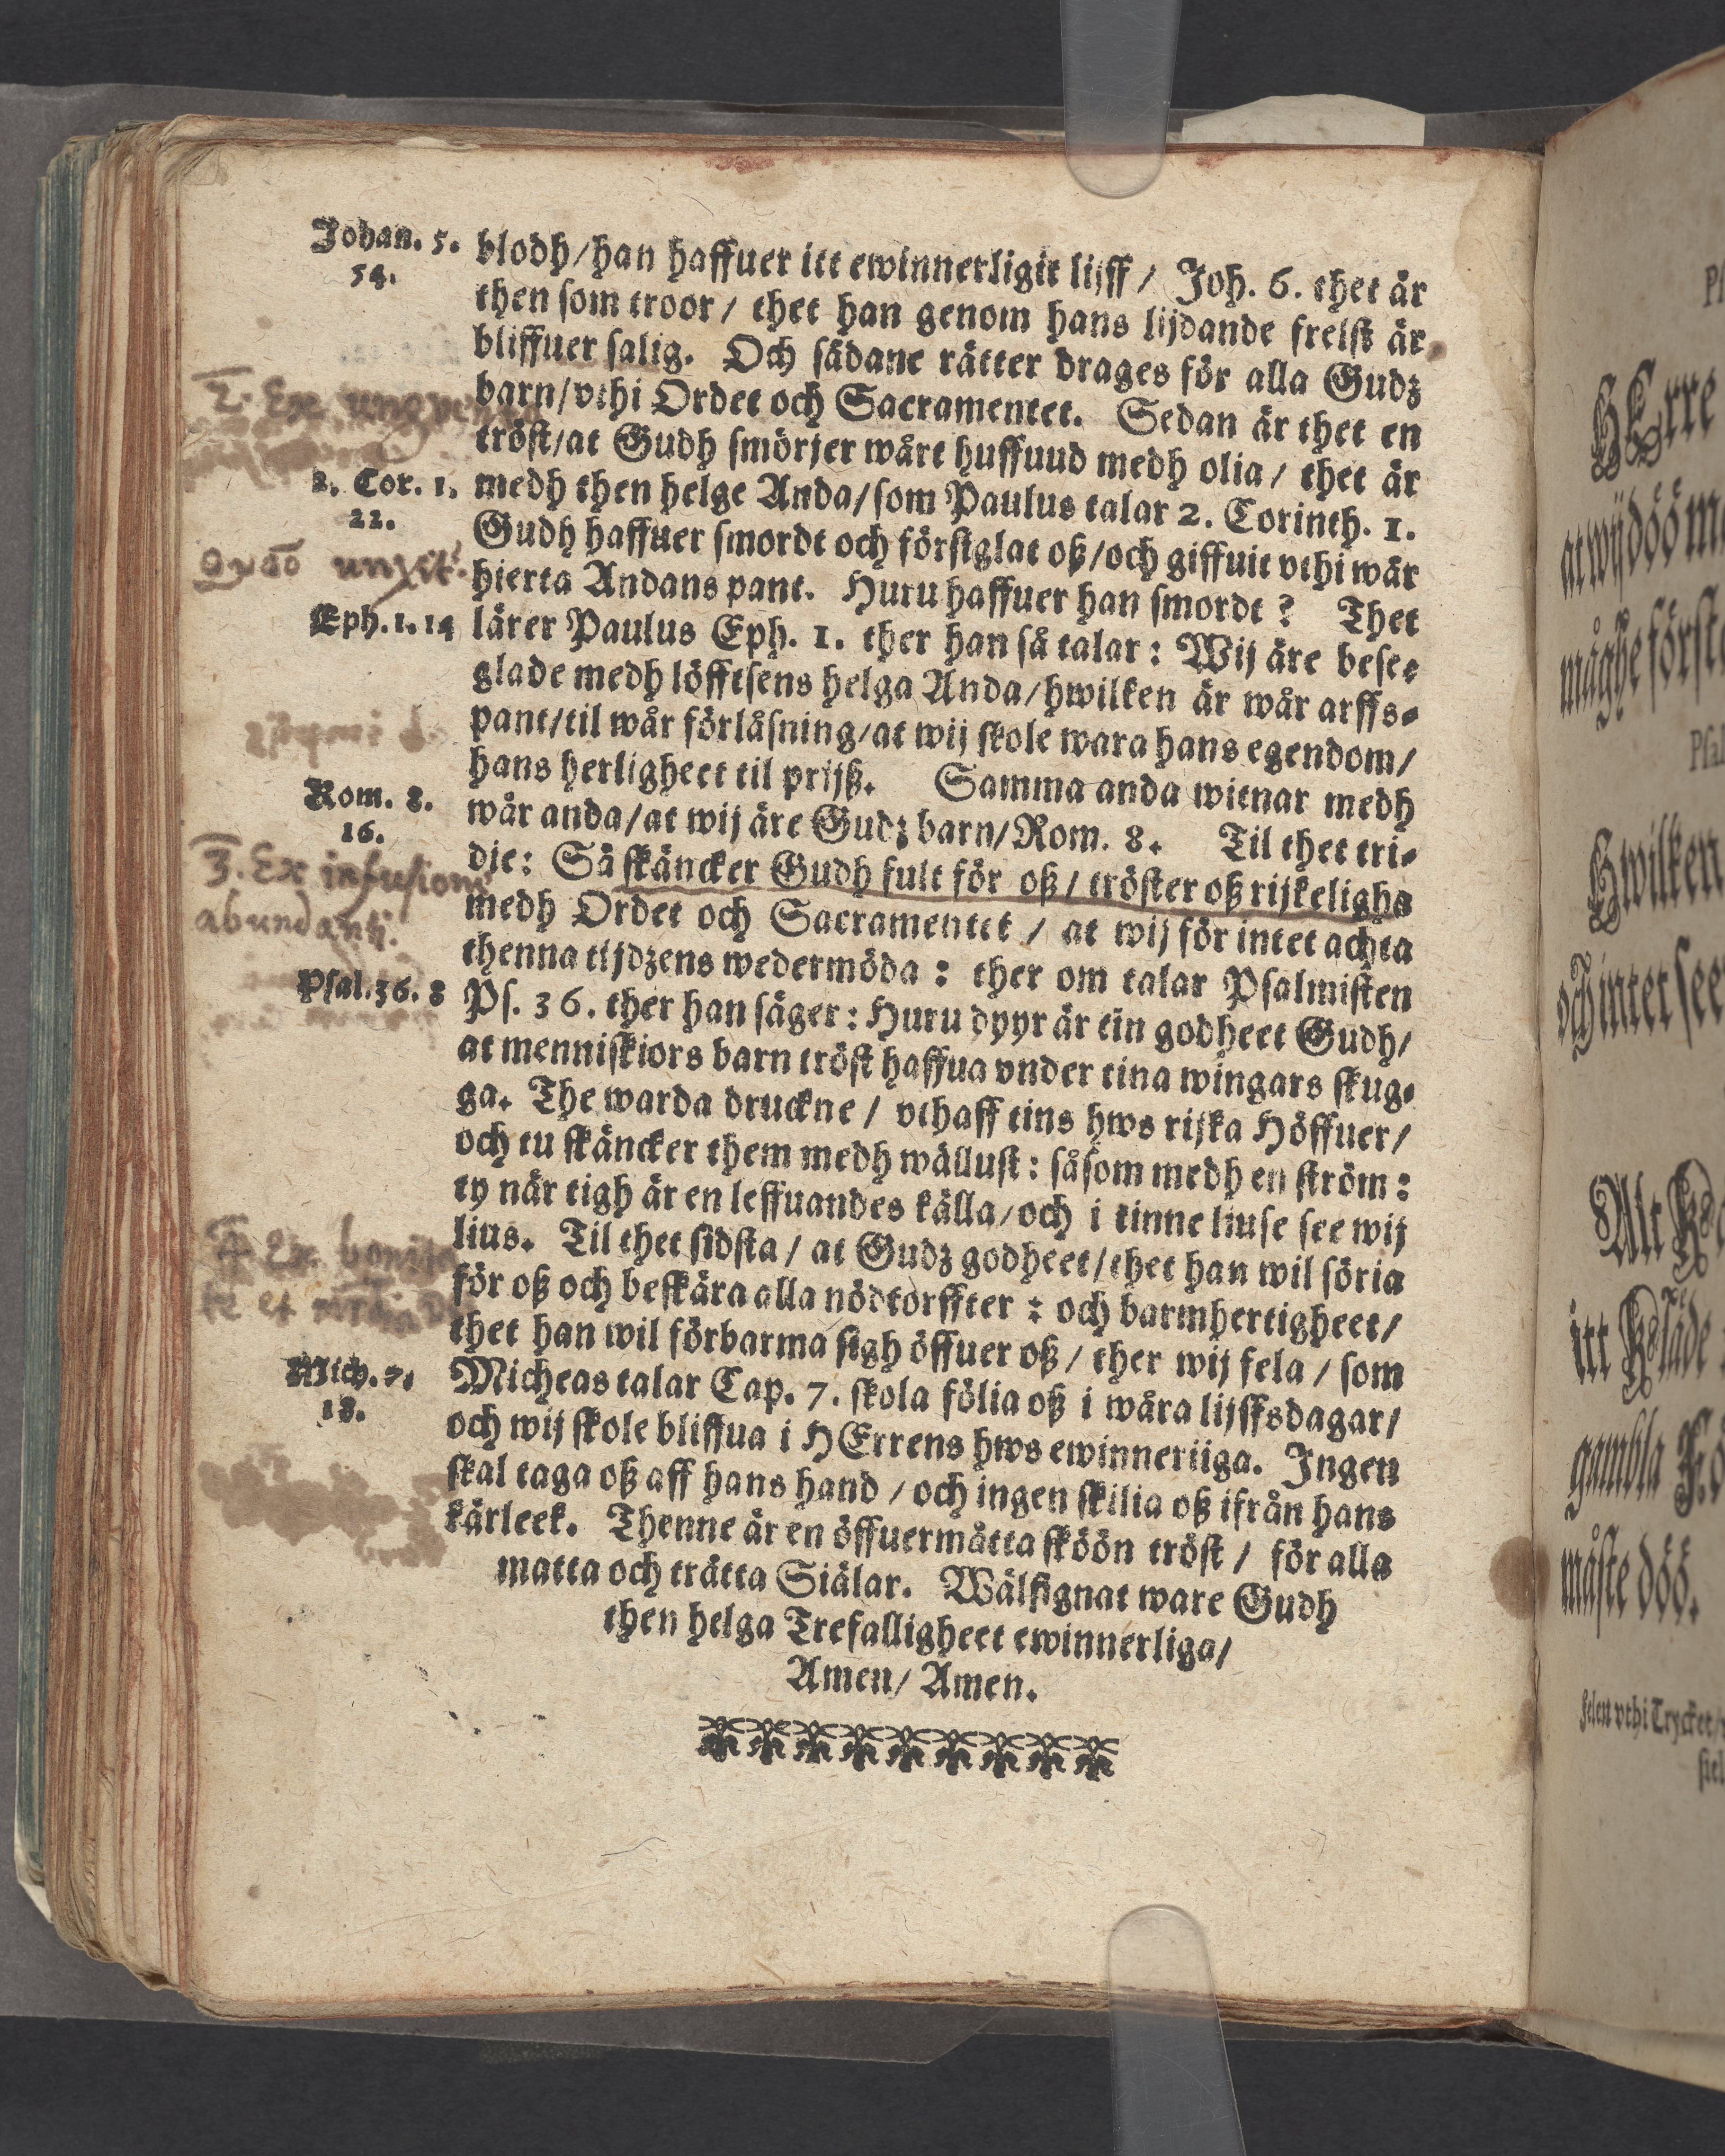 Johan. 5.
54.
blodh/han haffuer itt ewinnerligit lijff/ Joh. 6. thet är
then som troor/ thet han genom hans lijdande frelst är
bliffuer salig. Och sådane rätter drages för alla Gudz
barn/vthi Ordet och Sacramentet. Sedan är thet en
2. Ex
tröst/at Gudh smörjer wårt huffuud medh olia/ thet är
2. Cor. 1.
22.
medh then helge Anda/som Paulus talar 2. Corinth. 1.
Gudh haffuer smordt och försiglat oß/och giffuit vthi wår
unxit
hierta Andans pant. Huru haffuer han smordt? Thet
Eph. 1. 14
lärer Paulus Eph. 1. ther han så talar: Wij äre bese-
glade medh löfftsens helga Anda/hwilken är wår arffs-
pant/til wår förlåsning/at wij skole wara hans egendom/
hans herligheet til prijß. Samma anda witnar medh
Rom. 8.
16.
wår anda/at wij äre Gudz barn/Rom. 8. Til thet tri-
3. Ex infusione
abundanti.
die: Så skäncker Gudh fult för oß/tröster oß rijkelighs
medh Ordet och Sacramentet / at wij för intet achta
thenna tijdzens wedermöda: ther om talar Psalmisten
Psal. 36. 8
Ps. 36. ther han säger: Huru dyyr är tin godheet Gudh/
at menniskiors barn tröst haffua vnder tina wingars skug-
ga. The warda druckne / vthaff tins hws rijka Höffuer/
och tu skäncker them medh wällust: såsom medh en ström:
ty när tigh är en leffuandes källa/och i tinne liuse see wij
4 Ex bonita
te et
lius. Til thet sidsta / at Gudz godheet/thet han wil söria
för oß och beskära alla nödtorffter: och barmhertigheet/
thet han wil förbarma sigh öffuer oß / ther wij fela / som
Mich. 7.
18.
Micheas talar Cap. 7. skola fölia oß i wåra lijffsdagar/
och wij skole bliffua i HErrens hws ewinneriiga. Ingen
skal taga oß aff hans hand / och ingen skilia oß ifrån hans
kärleek. Thenne är en öffuermåtta sköön tröst / för alla
matta och trätta Siälar. Wälsignat ware Gudh
then helga Trefalligheet ewinnerliga/
Amen/ Amen.
HErre
at wij döö
måghe
Hwilken
och intet see
Alt
itt Kläde
gambla
måste döö.
vthi Trycket